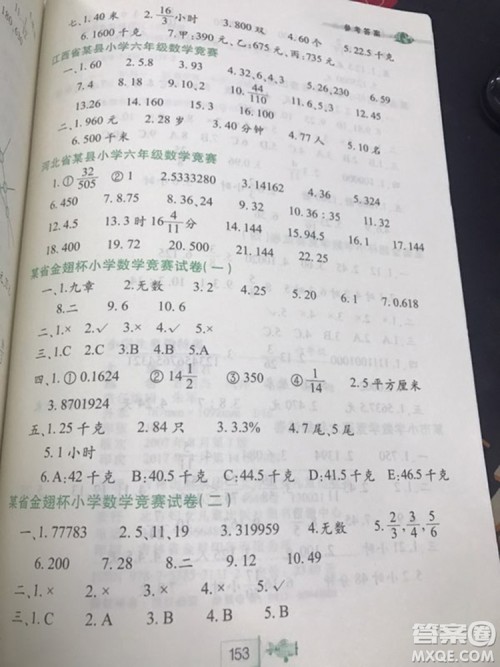 参考答案
七、1.40米 2.16/3小时 3.800双 4.60个 5.22.5千克
6.1600千克 7.甲:390元,乙:675元,丙:735元
江西省某县小学六年级数学竞赛
一、1.60 2.5.8 3.93 4.32,6,3,2 5.150 6.4
7.24 8.18 9.100 10.44/110 11.6,5,3 12.11
13.26 14.8 15.16 16.3 17.38 18.45
二、1.960元 2.28岁 3.40分钟 4.77人 5.10名
6.500千米
河北省某县小学六年级数学竞赛
1.①32/505 ②1 2.5333280 3.14162 4.36 5.9
6.450 7.8.75 8.36 9.16 10.64 11.2
12.4.5 13.3时16 4/11分 14.900 15.9.42 16.1 17.144
18.400 19.72 20.500 21.144 22.25
某省金翅杯小学数学竞赛试卷(一)
一、1.九章 2.无数 3.2 4.25 5.20 6.1 7.0.618
8.二 9.6 10.6
二、1.× 2.✓ 3.× 4.✓ 5.×
三、1.C 2.C 3.B 4.B 5.A
四、1.①0.1624 ②14 1/2 ③350 ④1/14 2.5平方厘米
3.8701924
五、1.25千克 2.84只 3.3.3% 4.7尾,5尾
5.1小时
6.A:42千克 B:40.5千克 C:44.5千克 D:41.5千克 E:46.5千克
某省金翅杯小学数学竞赛试卷(二)
一、1.77783 2.5、11、29 3.319959 4.无数 5.2/3,3/4,5/6
6.200 7.28 8.二 9.12 10.49
二、1.× 2.× 3.✓ 4.× 5.×
三、1.C 2.A 3.B 4.B 5.B
153
答案圈
MXQE.COM